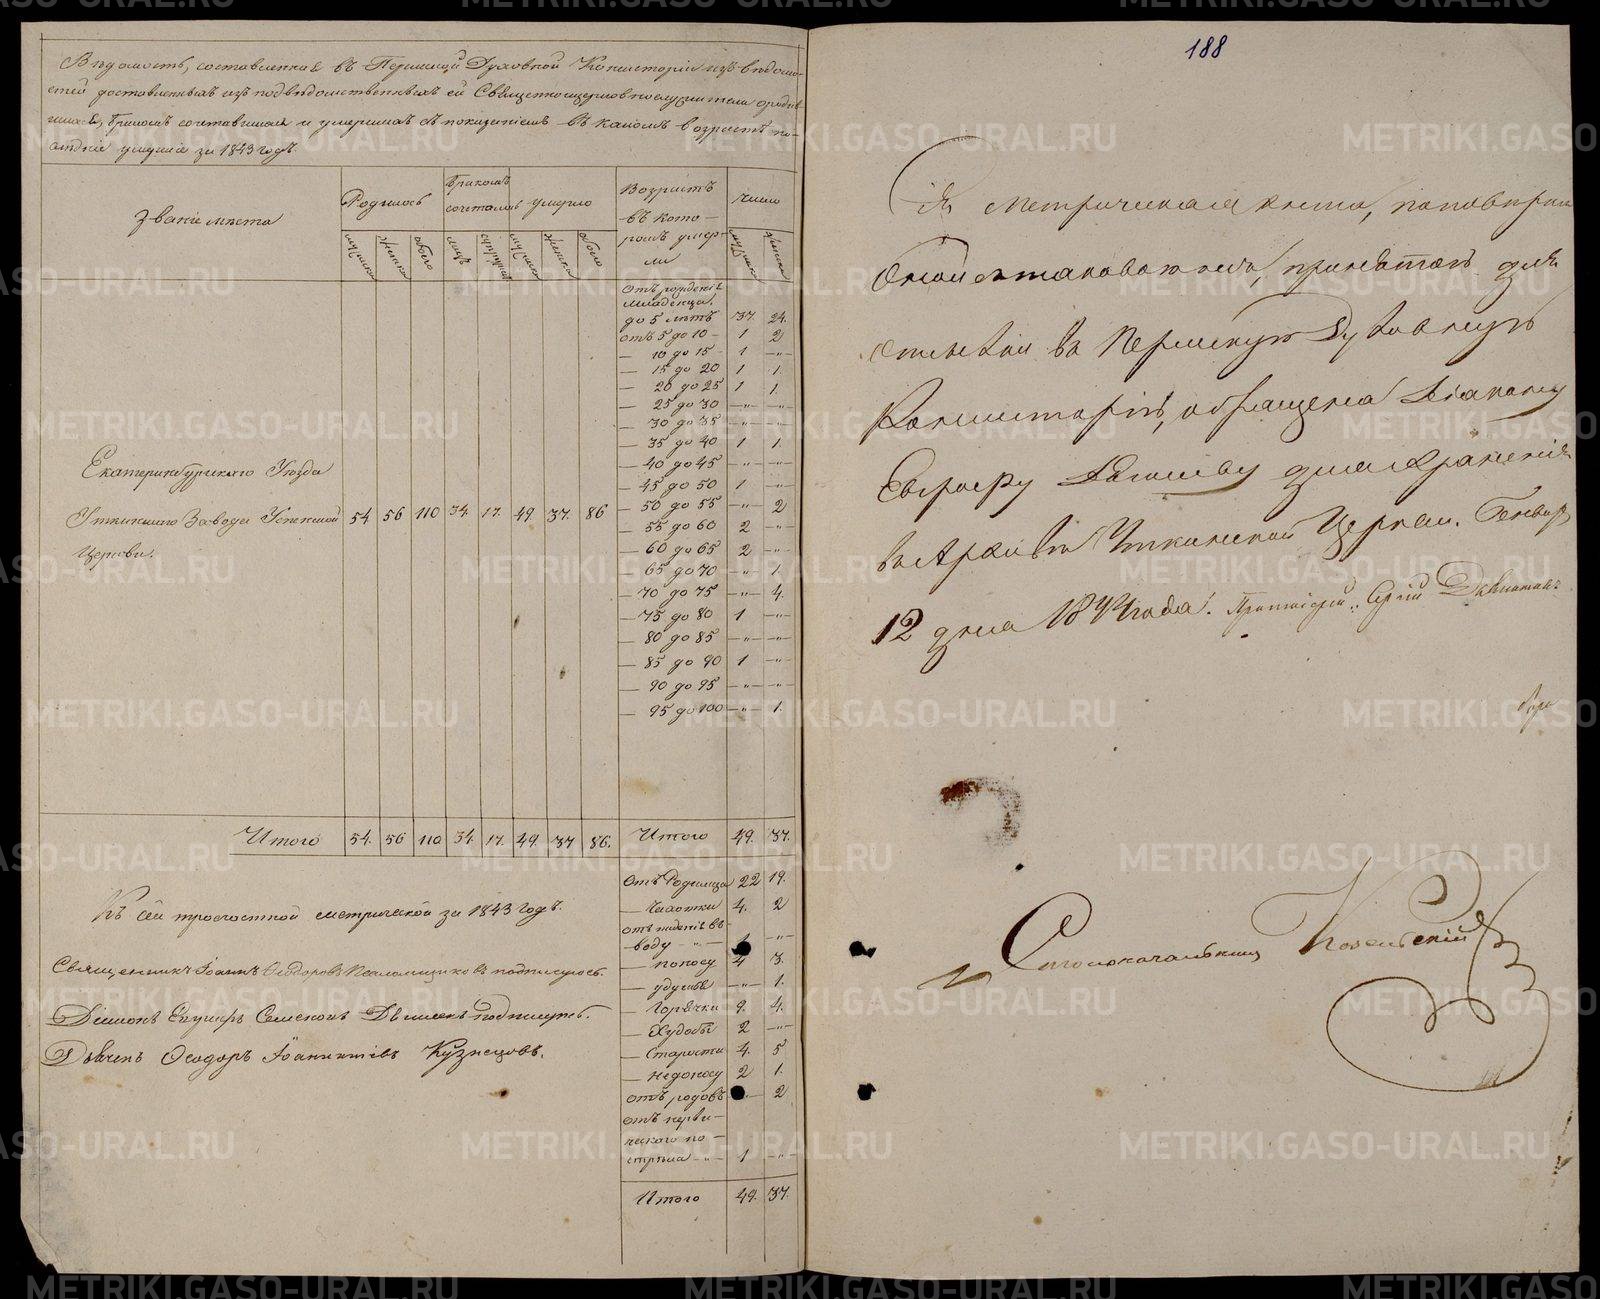 Вѣдомость, составленная въ Пермской Духовной Консисторіи изъ вѣдомо-
стей доставленныхъ изъ подвѣдомственныхъ ей Священноцерковнослужителей о родив
шихся, бракомъ сочетавшихся и умершихъ съ показаніемъ въ какомъ возрастѣ по-
слѣдніе умерли за 1843 годъ.
Званіе мѣста
Родилось
Бракомъ сочеталось
умерло
Возрастъ въ кото-
ромъ умер-
ли
число
мужска женска обоего лицъ супруж мужска женска обоего мужска женска
Отъ рожденія
младенца
до 5 лѣтъ 37. 24.
отъ 5 до 10 1 2
— 10 до 15 1 —"—
— 15 до 20 1 1.
— 20 до 25 1 1.
— 25 до 30 —"— —"—
— 30 до 35 —"— —"—
— 35 до 40 1 1.
— 40 до 45 —"— —"—
— 45 до 50 1 —"—
— 50 до 55 —"— 2
— 55 до 60 2 —"—
— 60 до 65 2 —"—
— 65 до 70 —"— 1.
— 70 до 75 —"— 4.
— 75 до 80 1 —"—
— 80 до 85 —"— —"—
— 85 до 90 1 —"—
— 90 до 95 —"— —"—
— 95 до 100 —"— 1.
Екатеринбургскаго Уѣзда
Уткинскаго Завода Успенской 54 56 110 34. 17. 49. 37. 86
Церкви.
Итого 54. 56 110 34. 17. 49. 37 86. Итого 49. 37.
Отъ Родимца 22 19.
— Чахотки 4. 2
отъ паденія въ
воду —"— 1 —"—
— поносу 4 3.
— удушья —"— 1.
— Горячки 9. 4.
— Худобы 2 —"—
— Старости 4. 5
— Недоносу 2 1.
отъ родовъ 2
отъ нерви-
ческаго по-
стрѣла —"— 1 —"—
Итого 49. 37.
Къ сей троечастной метрической за 1843 годъ.
Священникъ Іоаннъ Ѳеодоровъ Псаломщиковъ подписуюсь.
Діаконъ Подписуюсь.
Дьячекъ Ѳеодоръ Іоанникіевъ Кузнецовъ.
188
Сія Метрическая книга, по повѣркѣ
оной съ таковою же, принятою для
отсылки въ Пермскую Духовную
Консисторію, обращена Діакону
для храненія
въ Архивѣ Уткинской Церкви. Генваря
12 дня 1844 года. Протоіерей Сергій
Столоначальникъ
METRIKI.GASO-URAL.RU